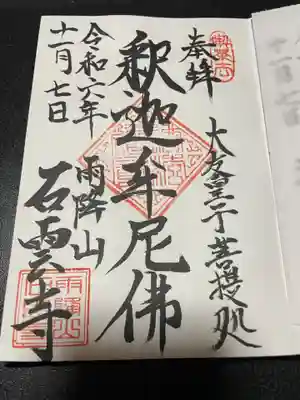 奉拝
大友皇子菩提処
釈迦牟尼佛
雨降山
石雲寺
令和六年
十一月七日